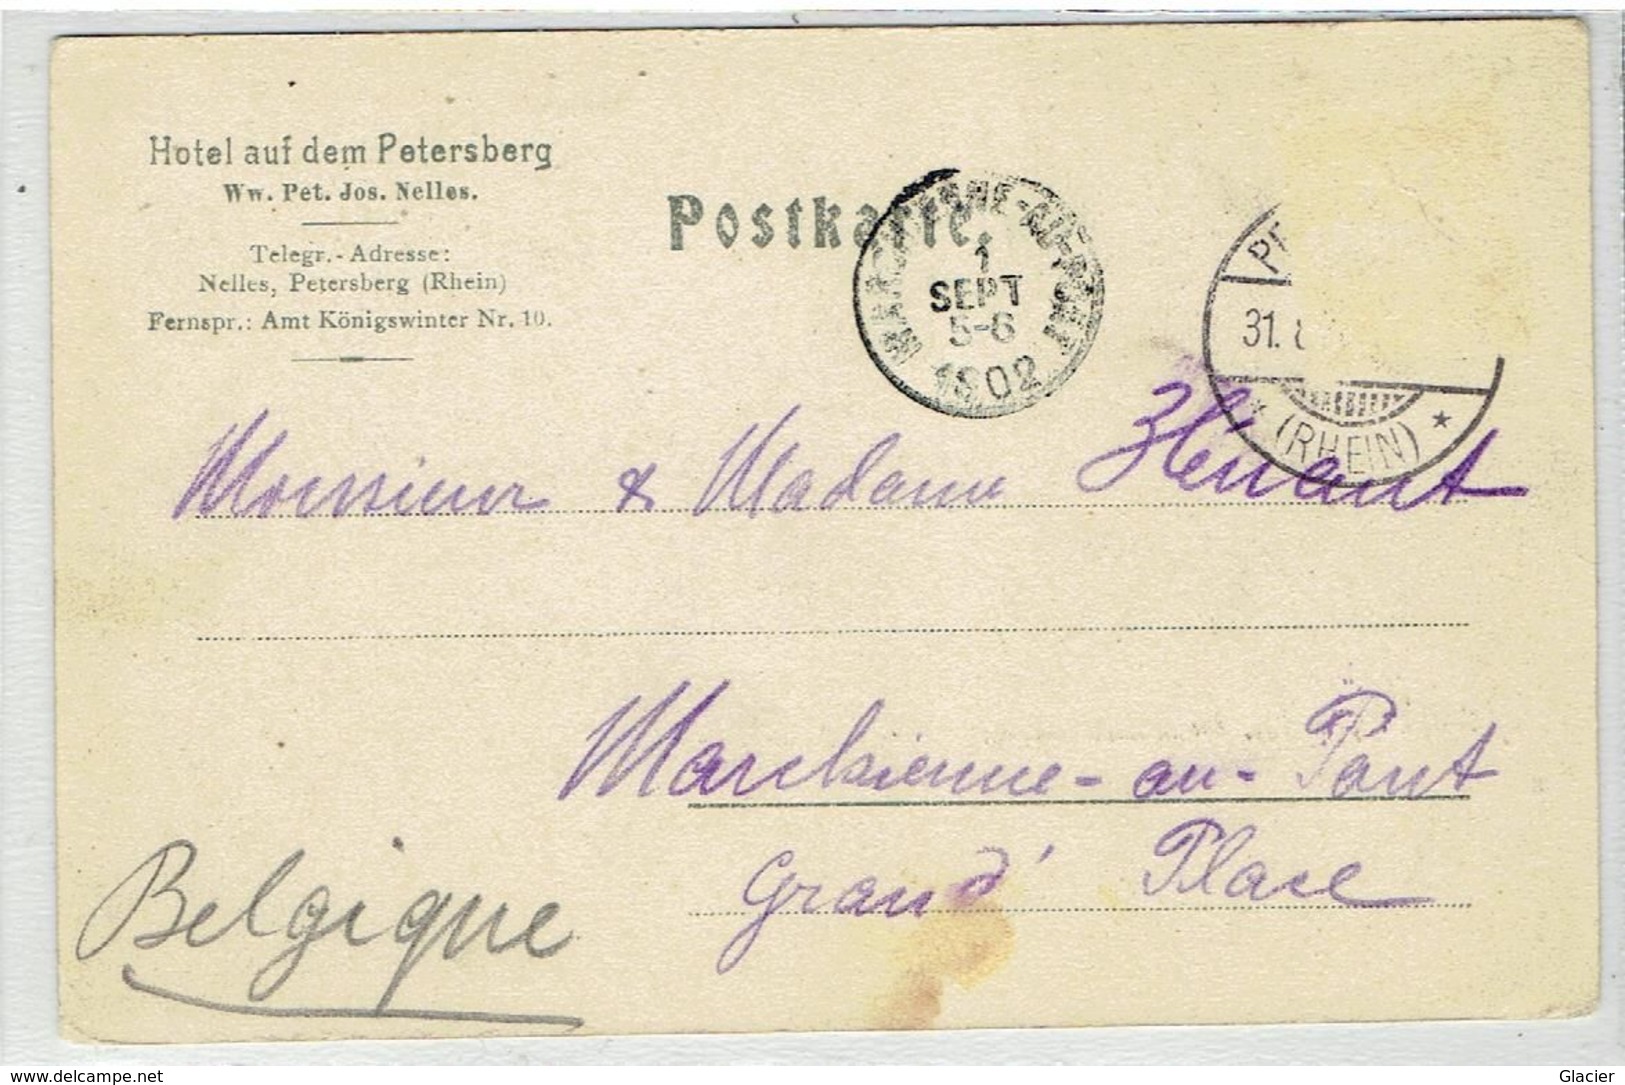 Hotel auf dem Petersberg
Ww. Pet. Jos. Nelles.
Telegr.-Adresse:
Nelles, Petersberg (Rhein)
Fernspr.: Amt Königswinter Nr. 10.
Postkarte.
MARCHIENNE-AU-PONT
1
SEPT
5-6
1902
PE
31. 8
(RHEIN)
Monsieur & Madame
Marchienne-au-Pont
Grand' Place
Belgique
www.delcampe.net
Glacier